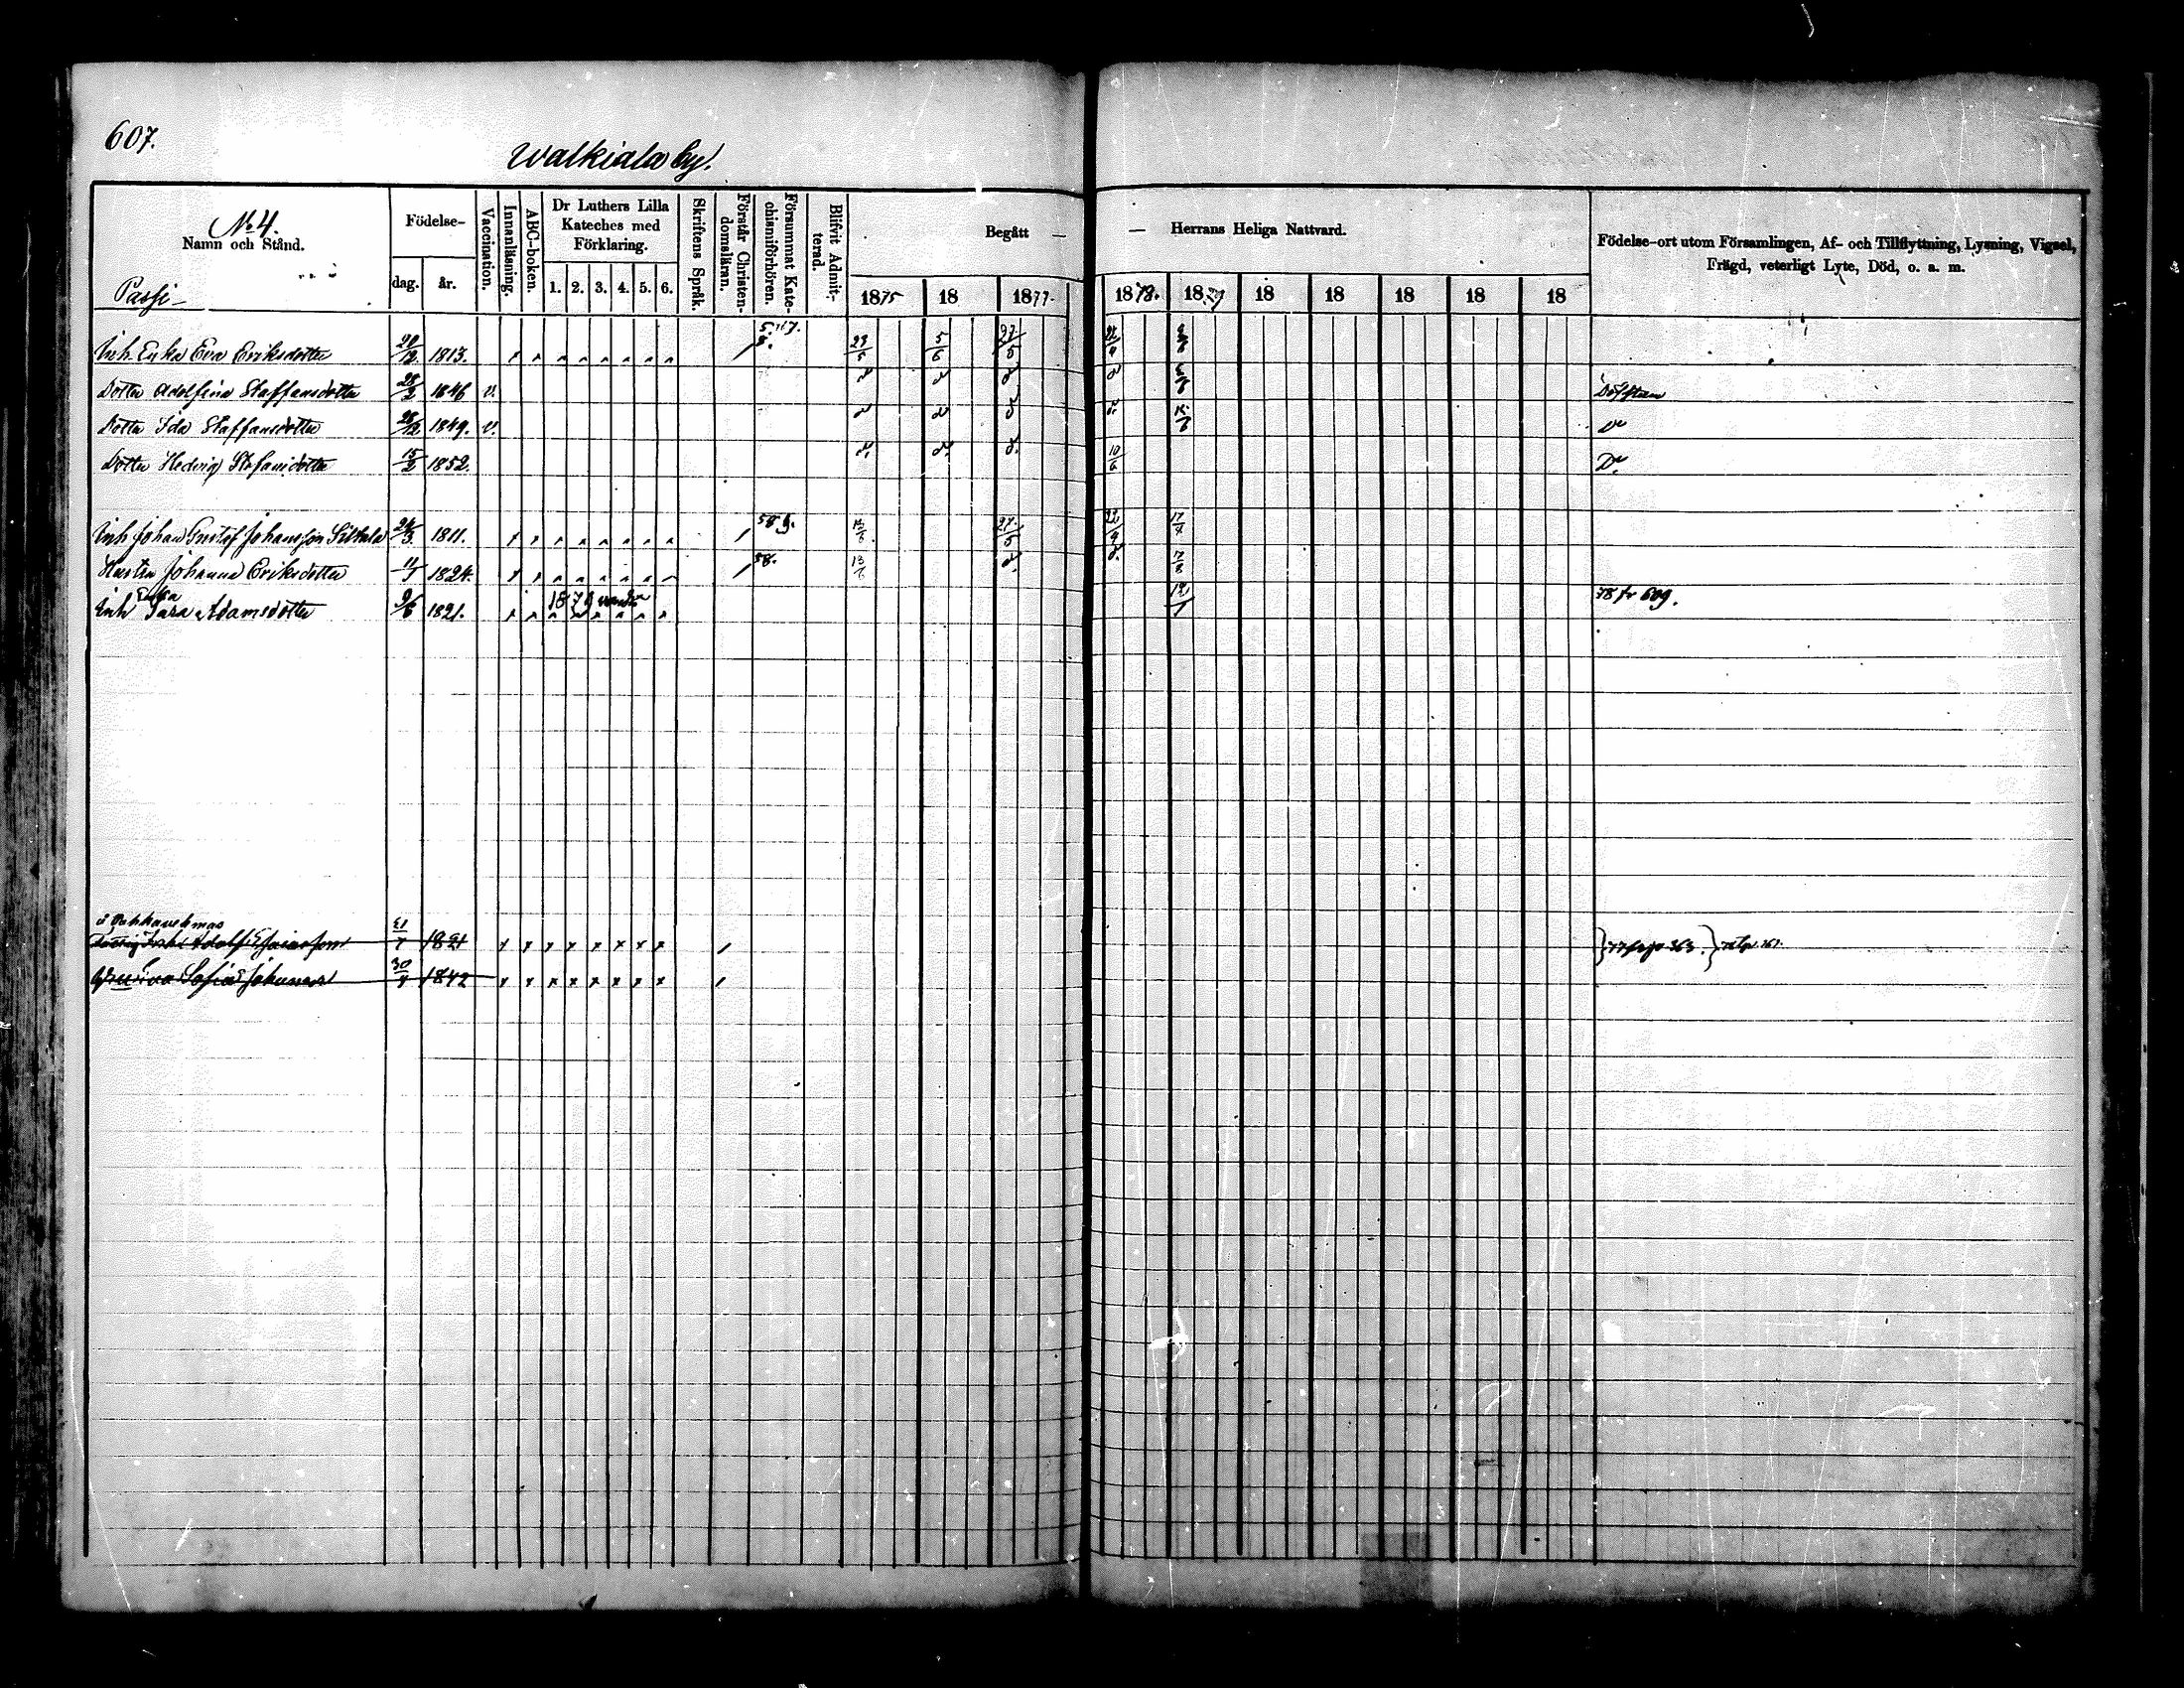 607.
Walkiala by.
No 4.
Namn och Stånd.
Passi
Födelse-
dag.
år.
Vaccination.
Innanläsning.
ABC-boken.
Dr Luthers Lilla
Kateches med
Förklaring.
1. 2. 3. 4. 5. 6.
Skriftens Språk.
Förstår Christen-
domsläran.
Försummat Kate-
chismiförhören.
Blifvit Admit-
terad.
Begått —
— Herrans Heliga Nattvard.
1875 18 1877. 1878. 1879 18 18 18 18 18
Födelse-ort utom Församlingen, Af- och Tillflyttning, Lysning, Vigsel,
Frägd, veterligt Lyte, Död, o. a. m.
Inh. Enka Eva Eriksdotter 28/12 1813. 23/5 5/6 27/5
Dotter Adolfina Staffansdotter 28/2 1846 v. Döfstum
Dotter Ida Staffansdotter 1849. v. Do
Dotter Hedvig Stefansdotter 15/2 1852. 10/6 Do
Inh Johan Gustaf Johansson Siltala 24/3 1811. 58 9. 27/5 17/8
Hustru Johanna Eriksdotter 11/1 1824. 58. 13/6 17/8
Enka
Inh Sara Adamsdotter 9/6 1821. 1879 78 fr 609.
Adolf Esaiasson 1821 77 fr p 363.
Eva Sofia Johansd 30/4 1842